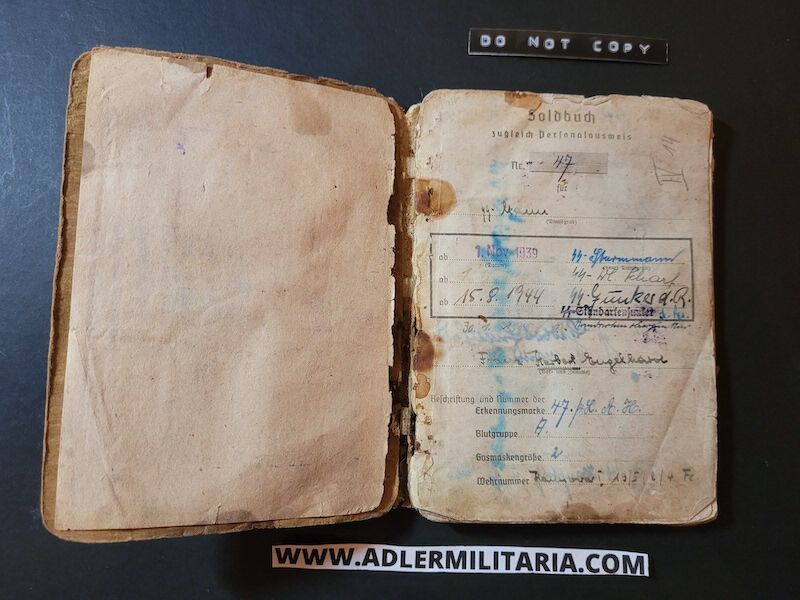 DO NOT COPY
Soldbuch
zugleich Personalausweis
Nr. 47
für
IV 14
SS-Mann
(Dienstgrad)
ab 1. Nov. 1939 SS-Sturmmann
(Datum)
ab
ab 15.8.1944 SS-Junker d. R.
SS-Standartenjunker d. R.
30.
Herbert Engelhard
(Vor- und Zuname)
Beschriftung und Nummer der
Erkennungsmarke 47.
Blutgruppe A.
Gasmaskengröße 2
Wehrnummer
WWW.ADLERMILITARIA.COM